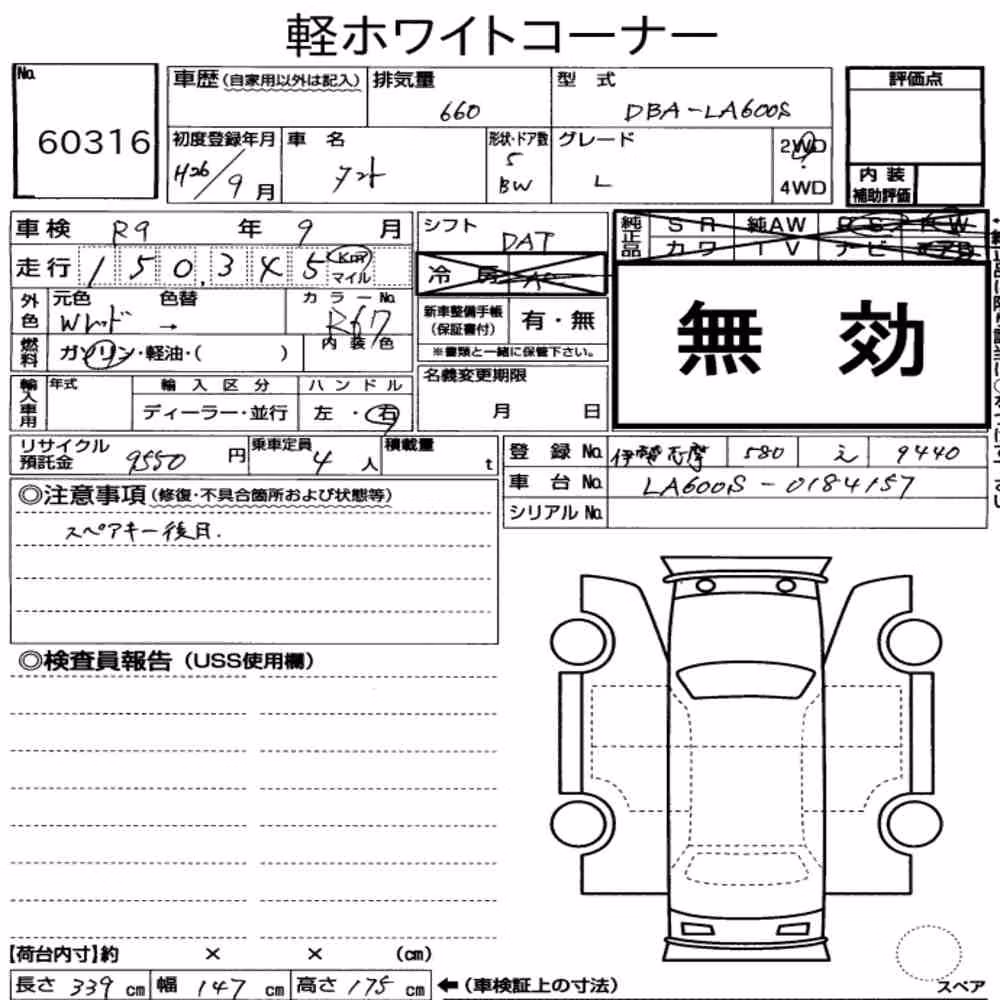 軽ホワイトコーナー
No.
60316
車歴(自家用以外は記入)
排気量
660
型 式
DBA-LA600S
評価点
初度登録年月
H26/9月
車 名
タント
形状・ドア数
5
BW
グレード
L
2WD
4WD
内 装
補助評価
車検 R9 年 9 月
シフト
DAT
純正品
S R 純AW P S P W
カワ T V ナビ エアB
走行 150,345 Km マイル
冷 房 AC
無 効
外色
元色 色替
Wレッド →
カラーNo.
R67
新車整備手帳
(保証書付)
有・無
※書類と一緒に保管下さい。
燃料
ガソリン・軽油・( )
内 装 色
輸入車用
年式
輸 入 区 分
ディーラー・並行
ハ ン ド ル
左 ・ 右
名義変更期限
月 日
リサイクル
預託金 9550 円
乗車定員
4 人
積載量
t
登 録 No. 伊勢志摩 580 え 9440
車 台 No. LA600S-0184157
シリアル No.
◎注意事項(修復・不具合箇所および状態等)
スペアキー後日.
◎検査員報告(USS使用欄)
【荷台内寸】約 × × (cm)
長さ 339 cm 幅 147 cm 高さ 175 cm ←(車検証上の寸法)
スペア